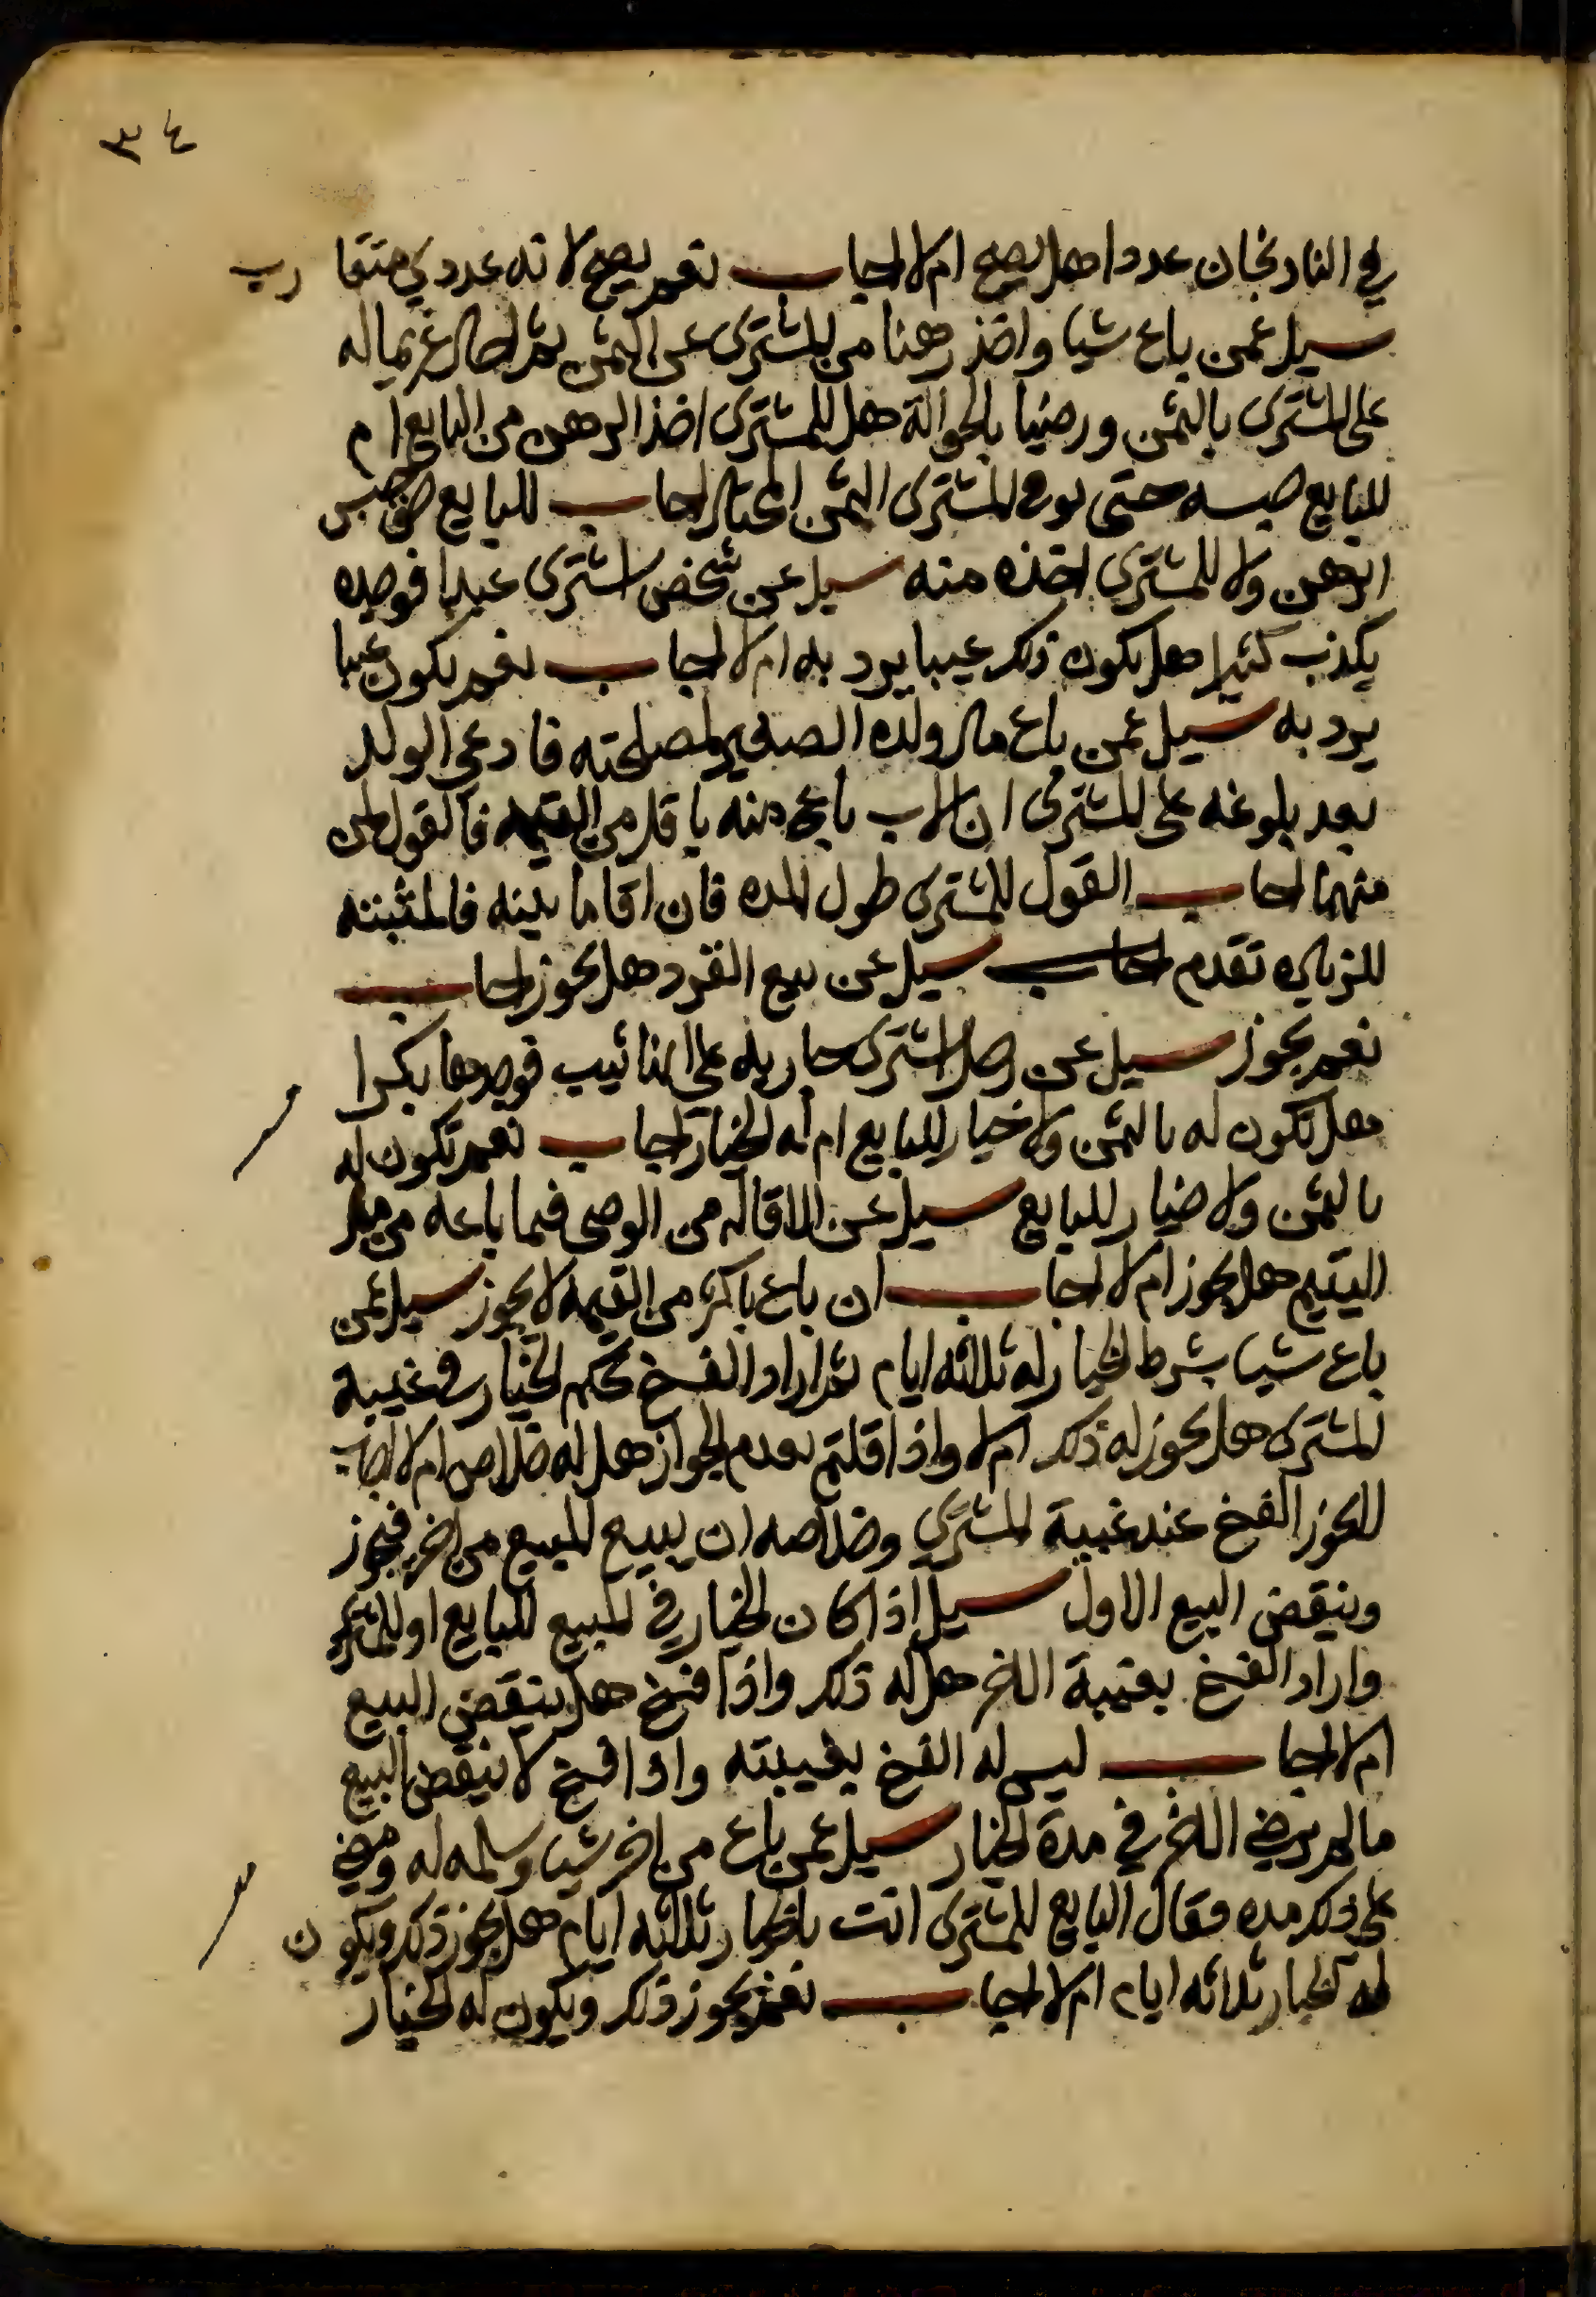 ٣٤
في الباذنجان عددا هل يصح ام لا اجاب نعم يصح لانه عددي متقارب
سيل عمن باع شيا واخذ رهنا من المشتري على الثمن ثم احال غريما له
على المشتري بالثمن ورضيا بالحوالة هل للمشتري اخذ الرهن من البايع ام
للبايع حبسه حتى يوفي المشتري الثمن المحتال اجاب للبايع حبس
الرهن ولا للمشتري اخذه منه سيل عن شخص اشترى عبدا فوجده
يكذب كثيرا هل يكون ذلك عيبا يرد به ام لا اجاب نعم يكون عيبا
يرد به سيل عمن باع مال ولده الصغير لمصلحته فادعى الولد
بعد بلوغه على المشتري ان الاب باع منه باقل من القيمه فالقول لمن
منهما اجاب القول للمشتري طول المده فان اقاما بينه فالمثبته
للزياده تقدم اجاب سيل عن بيع القرد هل يجوز اجاب
نعم يجوز سيل عن رجل اشترى جاريه على انها ثيب فوجدها بكرا
هل تكون له بالثمن ولا خيار للبايع ام له الخيار اجاب نعم تكون له
بالثمن ولا خيار للبايع سيل عن الاقاله من الوصي فيما باعه من مال
اليتيم هل يجوز ام لا اجاب ان باع باكثر من القيمه لا يجوز سيل عمن
باع شيا بشرط الخيار له ثلاثه ايام ثم اراد الفسخ بحكم الخيار في غيبة
المشتري هل يجوز له ذلك ام لا واذا قلتم بعدم الجواز هل له خلاص ام لا اجاب
لا يجوز الفسخ عند غيبة المشتري وخلاصه ان يبيع المبيع من اخر فيجوز
وينقض البيع الاول سيل اذا كان الخيار في المبيع للبايع او للمشتري
واراد الفسخ بغيبة الاخر هل له ذلك واذا فسخ هل ينقض البيع
ام لا اجاب ليس له الفسخ بغيبته واذا فسخ لا ينقض البيع
ما لم يرض الاخر في مدة الخيار سيل عمن باع من اخر شيا وسلمه له ومضى
على ذلك مده فقال البايع للمشتري انت بالخيار ثلاثه ايام هل يجوز ذلك ويكون
له الخيار ثلاثه ايام ام لا اجاب نعم يجوز ذلك ويكون له الخيار